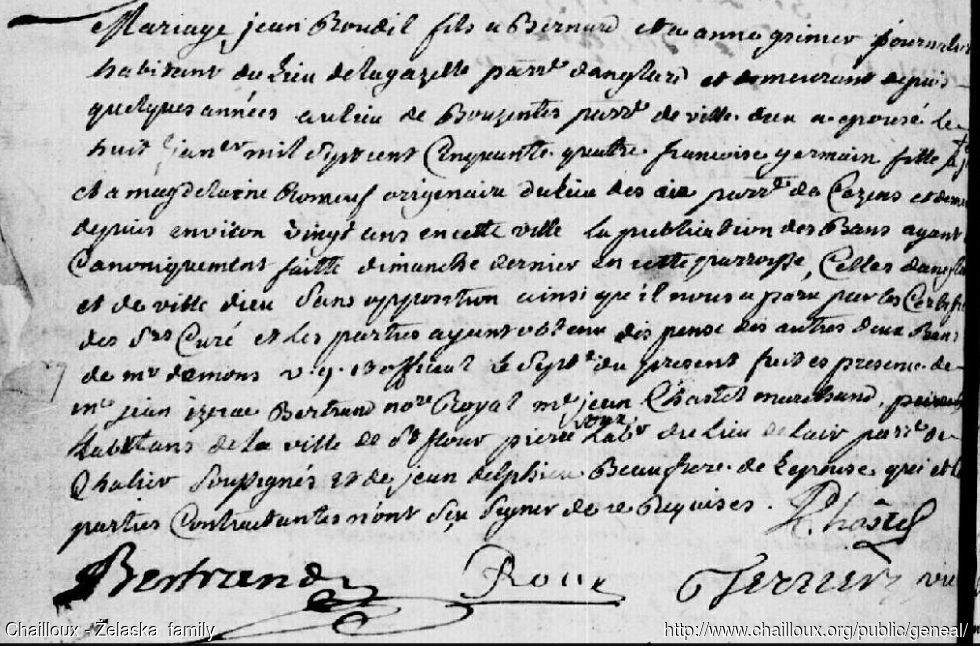 Mariage jean Roudil fils a Bernard et a anne grenier journalier
habitant du lieu de lagazelle parr.e danglard et demeurant depuis
quelques années au lieu de Bouzentes parr.e de ville dieu a epousé le
huit jan.er mil Sept cent Cinquante quatre francoise germain fille
et a magdelaine Romeuf origenaire du lieu des parr.e de Cezens et
depuis environ vingt ans en cette ville la publication des Bans ayant
Canoniquement faitte dimanche dernier en cette parroisse, Celles
et de ville dieu Sans opposition ainsi qu'il nous a paru par les
des Srs Curé et les parties ayant obtenu dispense des autres deux Bans
de mr demons v. g. et officiel le Sept.e du present fait es presence de
me jean Bertrand nore Royal me jean Chastel marchand,
habitans de la ville de St flour pierre Roux Labr du lieu de lair parr.e de
Chalier Soussignés et de jean delphieu Beaufrere de Lepouse qui et les
parties Contractantes n'ont Sçu Signer de ce Requises. Chastel
Bertrand Roux Terrier vic
Chailloux - Zelaska family http://www.chailloux.org/public/geneal/